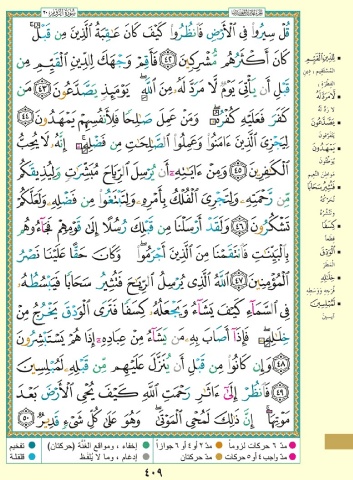 قُلْ سِيرُوا۟ فِى ٱلْأَرْضِ فَٱنظُرُوا۟ كَيْفَ كَانَ عَـٰقِبَةُ ٱلَّذِينَ مِن قَبْلُ ۚ
كَانَ أَكْثَرُهُم مُّشْرِكِينَ ٤٢ فَأَقِمْ وَجْهَكَ لِلدِّينِ ٱلْقَيِّمِ مِن
قَبْلِ أَن يَأْتِىَ يَوْمٌ لَّا مَرَدَّ لَهُۥ مِنَ ٱللَّهِ ۖ يَوْمَئِذٍ يَصَّدَّعُونَ ٤٣ مَن
كَفَرَ فَعَلَيْهِ كُفْرُهُۥ ۖ وَمَنْ عَمِلَ صَـٰلِحًا فَلِأَنفُسِهِمْ يَمْهَدُونَ ٤٤
لِيَجْزِىَ ٱلَّذِينَ ءَامَنُوا۟ وَعَمِلُوا۟ ٱلصَّـٰلِحَـٰتِ مِن فَضْلِهِۦٓ ۚ إِنَّهُۥ لَا يُحِبُّ
ٱلْكَـٰفِرِينَ ٤٥ وَمِنْ ءَايَـٰتِهِۦٓ أَن يُرْسِلَ ٱلرِّيَاحَ مُبَشِّرَٰتٍ وَلِيُذِيقَكُم
مِّن رَّحْمَتِهِۦ وَلِتَجْرِىَ ٱلْفُلْكُ بِأَمْرِهِۦ وَلِتَبْتَغُوا۟ مِن فَضْلِهِۦ وَلَعَلَّكُمْ
تَشْكُرُونَ ٤٦ وَلَقَدْ أَرْسَلْنَا مِن قَبْلِكَ رُسُلًا إِلَىٰ قَوْمِهِمْ فَجَآءُوهُم
بِٱلْبَيِّنَـٰتِ فَٱنتَقَمْنَا مِنَ ٱلَّذِينَ أَجْرَمُوا۟ ۖ وَكَانَ حَقًّا عَلَيْنَا نَصْرُ
ٱلْمُؤْمِنِينَ ٤٧ ٱللَّهُ ٱلَّذِى يُرْسِلُ ٱلرِّيَـٰحَ فَتُثِيرُ سَحَابًا فَيَبْسُطُهُۥ
فِى ٱلسَّمَآءِ كَيْفَ يَشَآءُ وَيَجْعَلُهُۥ كِسَفًا فَتَرَى ٱلْوَدْقَ يَخْرُجُ مِنْ
خِلَـٰلِهِۦ ۖ فَإِذَآ أَصَابَ بِهِۦ مَن يَشَآءُ مِنْ عِبَادِهِۦٓ إِذَا هُمْ يَسْتَبْشِرُونَ
٤٨ وَإِن كَانُوا۟ مِن قَبْلِ أَن يُنَزَّلَ عَلَيْهِم مِّن قَبْلِهِۦ لَمُبْلِسِينَ
٤٩ فَٱنظُرْ إِلَىٰٓ ءَاثَـٰرِ رَحْمَتِ ٱللَّهِ كَيْفَ يُحْىِ ٱلْأَرْضَ بَعْدَ
مَوْتِهَآ ۚ إِنَّ ذَٰلِكَ لَمُحْىِ ٱلْمَوْتَىٰ ۖ وَهُوَ عَلَىٰ كُلِّ شَىْءٍ قَدِيرٌ ٥٠
لِلدِّينِ الْقَيِّمِ
لَا مَرَدَّ لَهُ
يَصَّدَّعُونَ
يَمْهَدُونَ
فَتُثِيرُ سَحَابًا
كِسَفًا
الْوَدْقَ
خِلَالِهِ
لَمُبْلِسِينَ
مدّ ٦ حركات لزوماً مدّ ٢ أو ٤ أو ٦ جوازاً إخفاء، ومواقع الغُنَّة (حركتان) تفخيم
مدّ واجب ٤ أو ٥ حركات مدّ حركتان إدغام، وما لا يُلفَظ قلقلة
٤٠٩